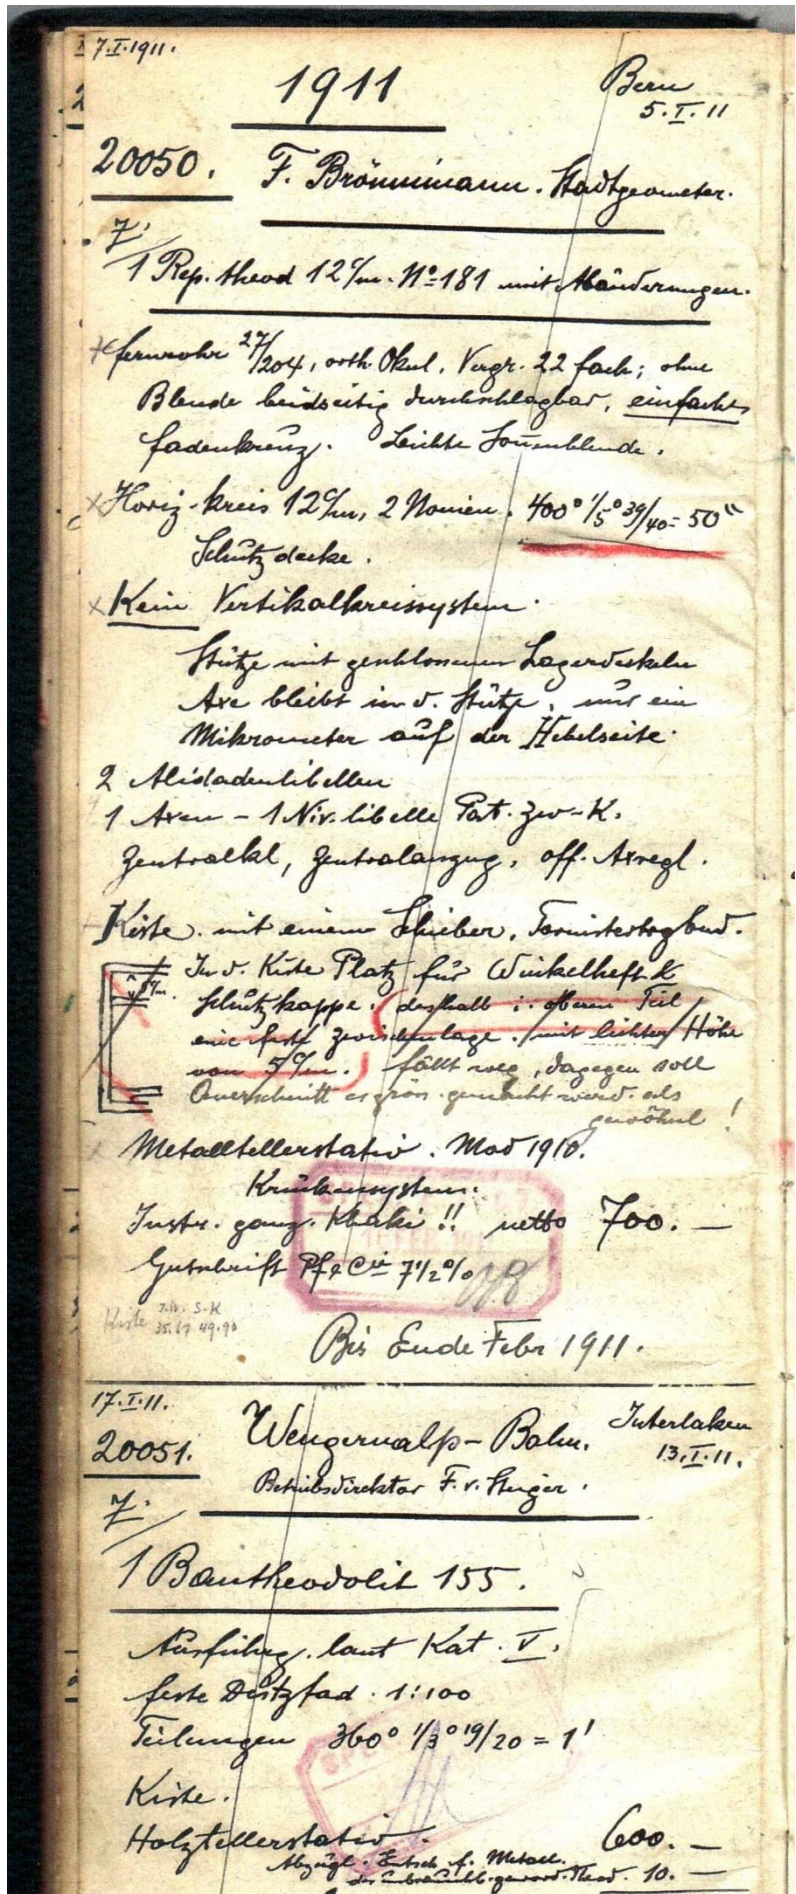 7.I.1911.
1911
Bern
5.I.11
20050. F. Brönnimann. Stadtgeometer.
7.
1 Rep. theod 12 c/m. No 181 mit Abänderungen.
Fernrohr 27/204, orth. Okul. Vergr. 22 fach; ohne
Blende beidseitig durchschlagbar, einfaches
Fadenkreuz. Leichte Sonnenblende.
Horiz-kreis 12 c/m, 2 Nonien. 400° 1/5° 39/40 = 50"
Schutzdecke.
Kein Vertikalkreissystem.
Stütze mit geschlossenen Lagerdeckeln
Axe bleibt in d. Stütze, nur ein
Mikrometer auf der Hebelseite.
2 Alidadenlibellen
1 Axen - 1 Niv. libelle Pat. Zw-K.
Zentralkl, Zentralanzug, off. Axregl.
Kiste mit einem Schieber,
In d. Kiste Platz für Winkelheft &
Schutzkappe. deshalb i. oberen Teil
eine feste Zwischenlage. mit lichter Höhe
von 5 c/m. fällt weg, dagegen soll
Querschnitt gemacht werd. als
gewöhnl!
Metalltellerstativ. Mod 1910.
Krückensystem.
Instr. ganz. Khaki!! netto 700.—
Gutschrift Pf & Cie 7 1/2 %
Kiste S.K
35.67 49.90
Bis Ende Febr 1911.
17.I.11.
20051. Wengernalp-Bahn. Interlaken
13.I.11.
Betriebsdirektor F. v. Steiger.
7.
1 Bautheodolit 155.
Ausführg. laut Kat. V.
feste Distzfad. 1:100
Teilungen 360° 1/3° 19/20 = 1'
Kiste.
Holztellerstativ. 600.—
Abzügl. Entsch. f. Metall.
des unbrauchb. geword. Theod. 10.—